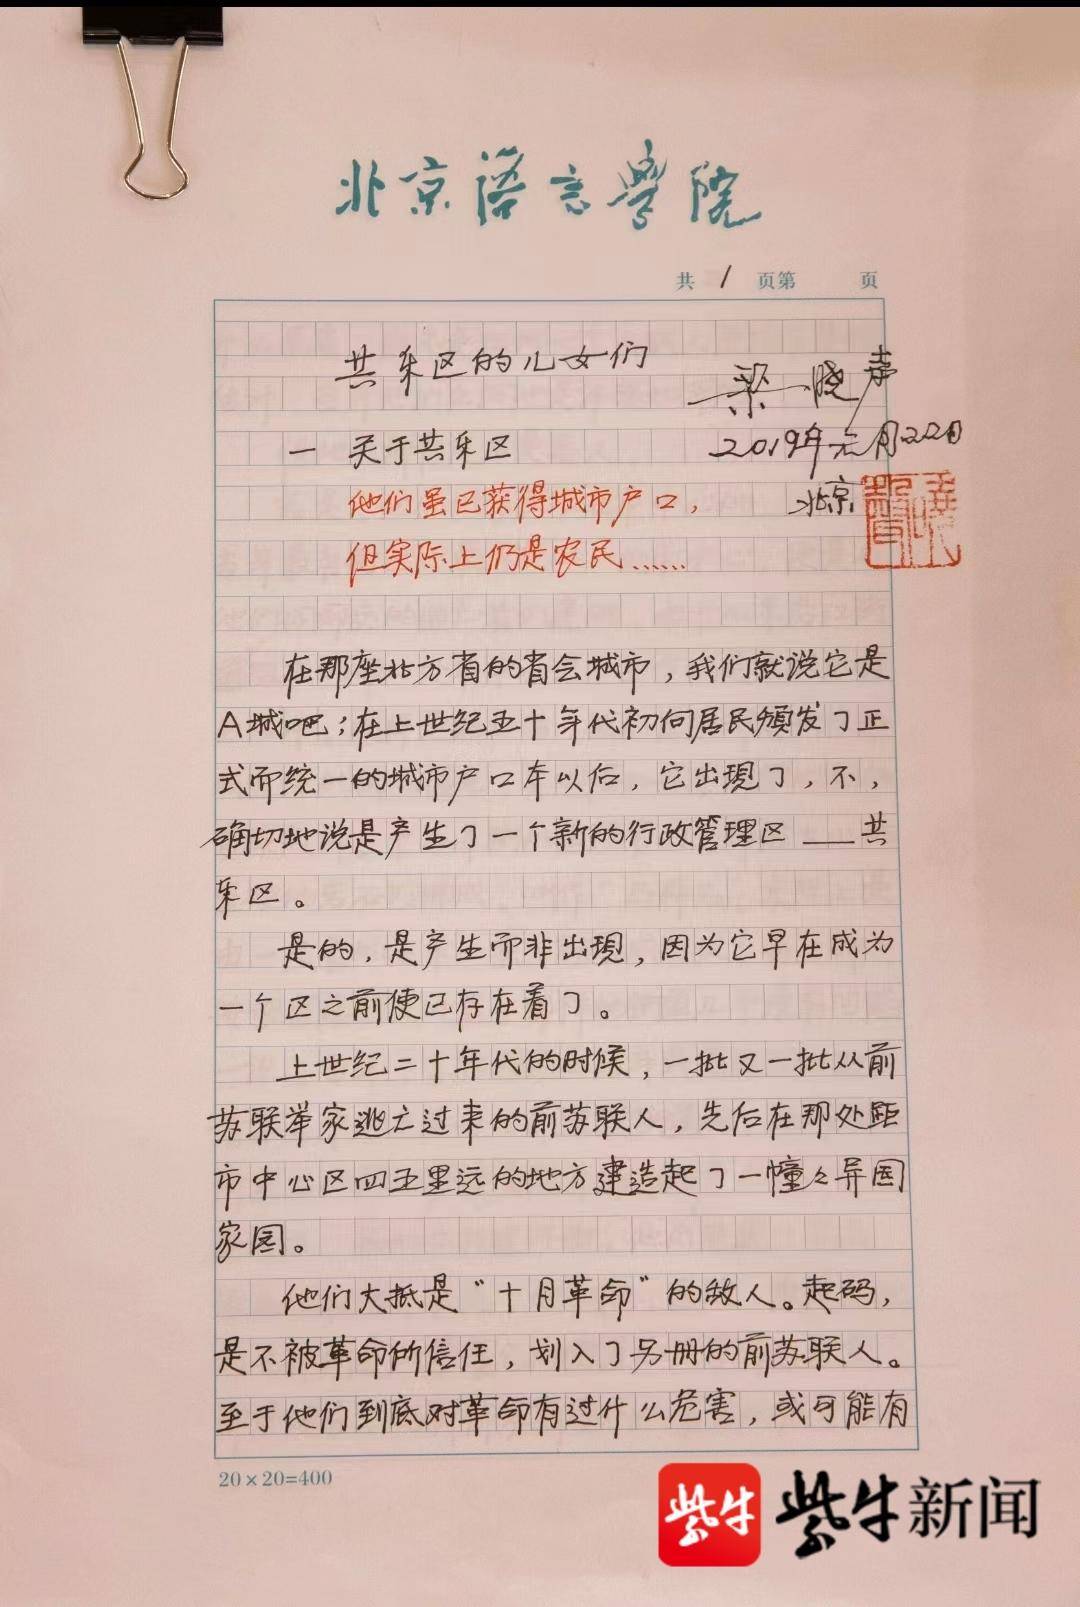 北京语言学院
共 1 页第 页
共乐区的儿女们
梁晓声
一 关于共乐区
2019年元月22日
他们虽已获得城市户口，
北京
但实际上仍是农民……
在那座北方省的省会城市，我们就说它是
A城吧；在上世纪五十年代初向居民颁发了正
式而统一的城市户口本以后，它出现了，不，
确切地说是产生了一个新的行政管理区——共
乐区。
是的，是产生而非出现，因为它早在成为
一个区之前便已存在着了。
上世纪二十年代的时候，一批又一批从前
苏联举家逃亡过来的前苏联人，先后在那处距
市中心区四五里远的地方建造起了一幢々异国
家园。
他们大抵是“十月革命”的敌人。起码，
是不被革命所信任，划入了另册的前苏联人。
至于他们到底对革命有过什么危害，或可能有
20×20=400
紫牛 紫牛新闻